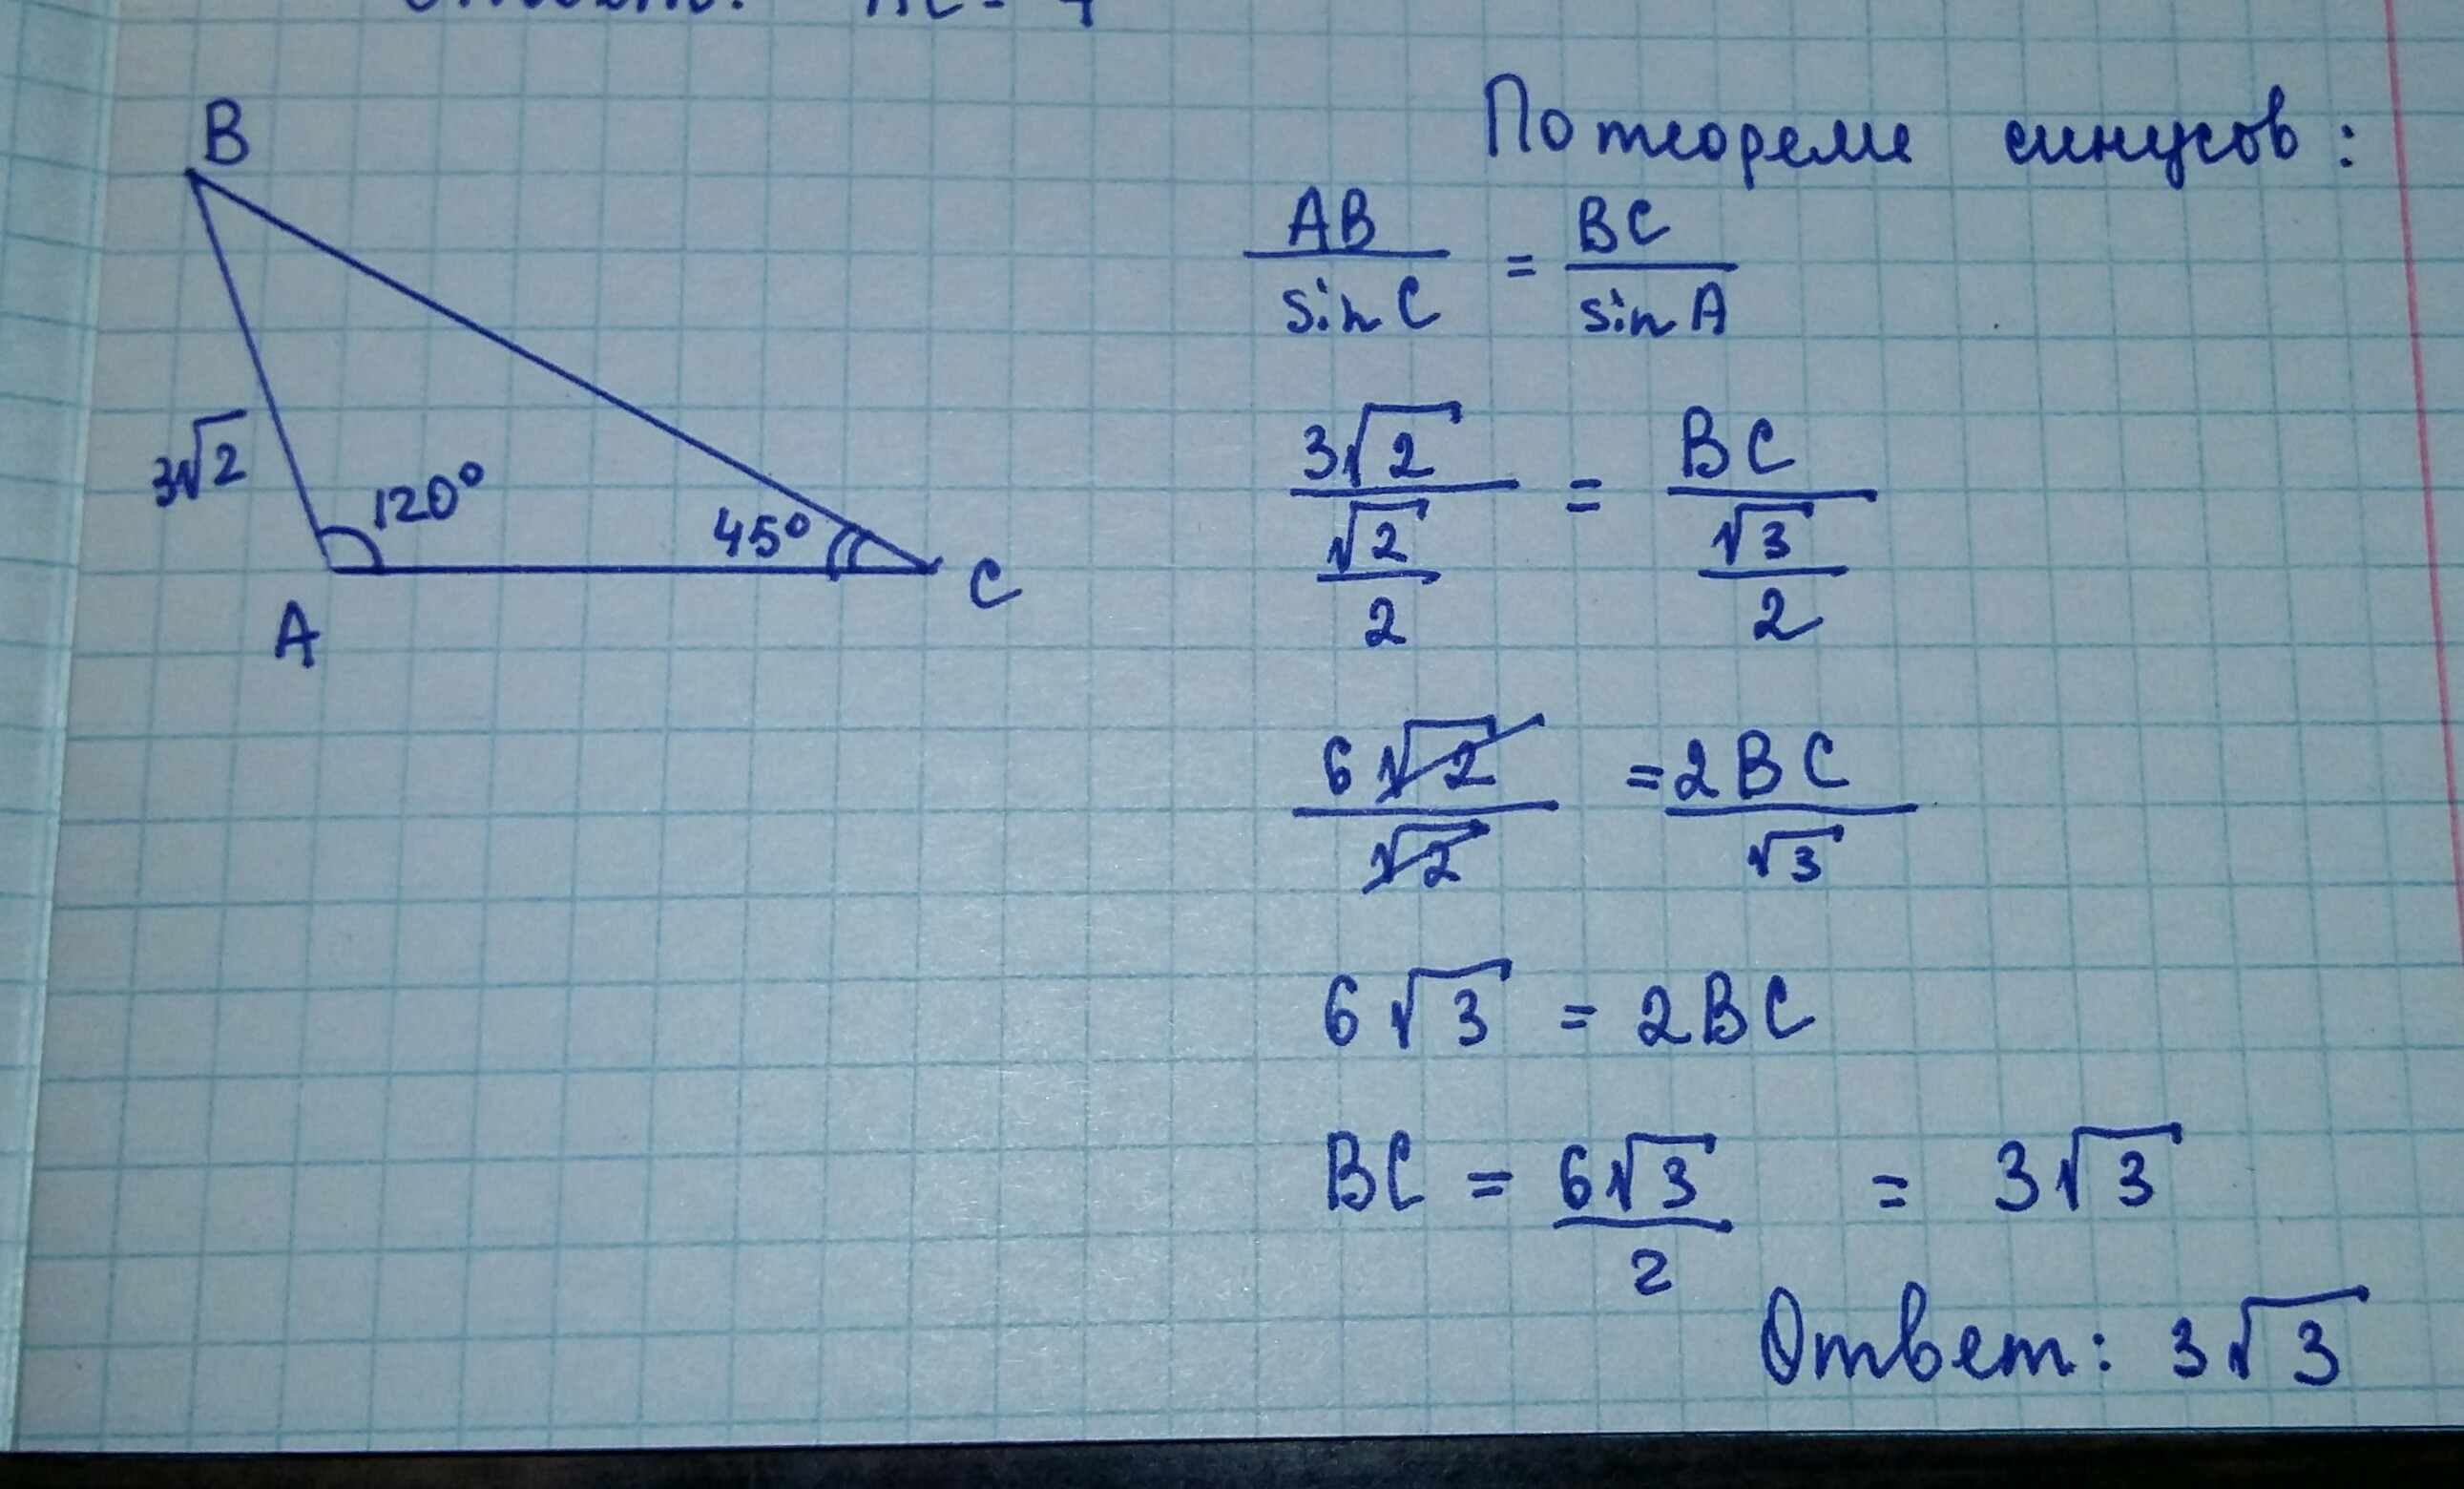 B
3√2
120°
45°
A
C
По теореме синусов:
AB/sin C = BC/sin A
3√2/(√2/2) = BC/(√3/2)
6√2/√2 = 2BC/√3
6√3 = 2BC
BC = 6√3/2 = 3√3
Ответ: 3√3